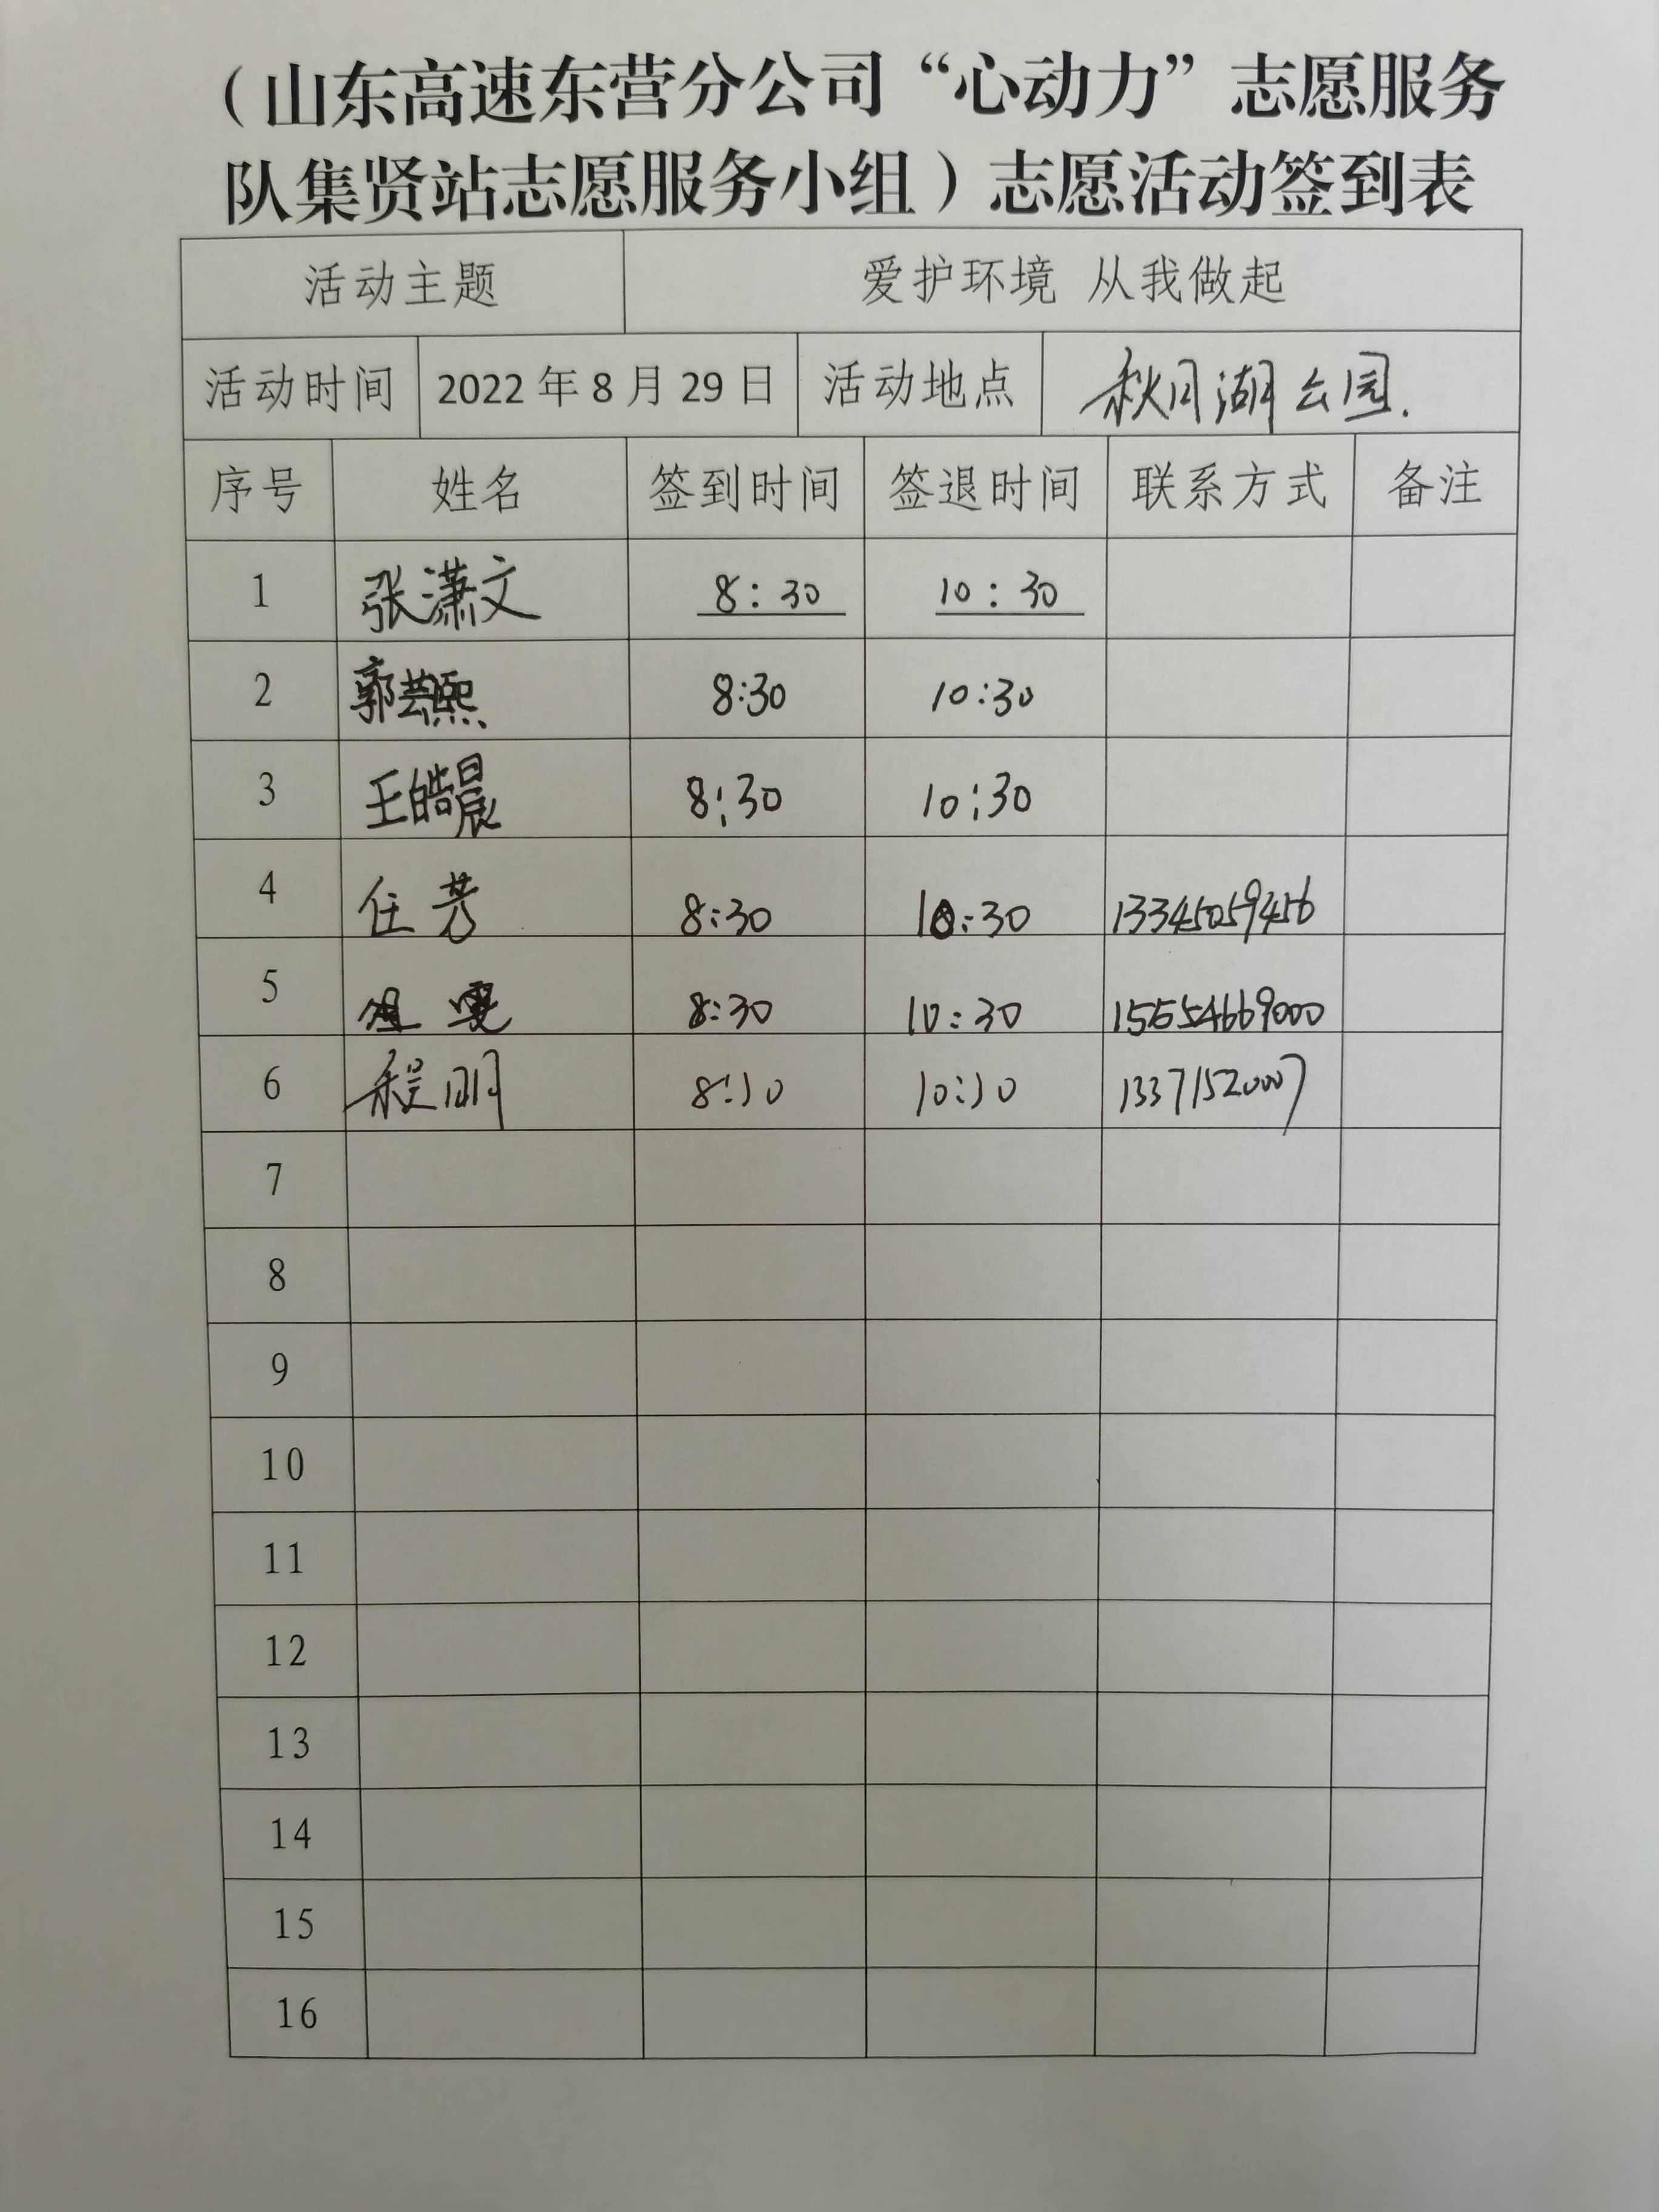 （山东高速东营分公司“心动力”志愿服务
队集贤站志愿服务小组）志愿活动签到表
活动主题 爱护环境 从我做起
活动时间 2022年8月29日 活动地点 秋月湖公园.
序号 姓名 签到时间 签退时间 联系方式 备注
1 张潇文 8:30 10:30
2 郭芸熙 8:30 10:30
3 王皓晨 8:30 10:30
4 任芳 8:30 10:30 13345059456
5 8:30 10:30 15554669000
6 程明 8:30 10:30 13371520007
7
8
9
10
11
12
13
14
15
16